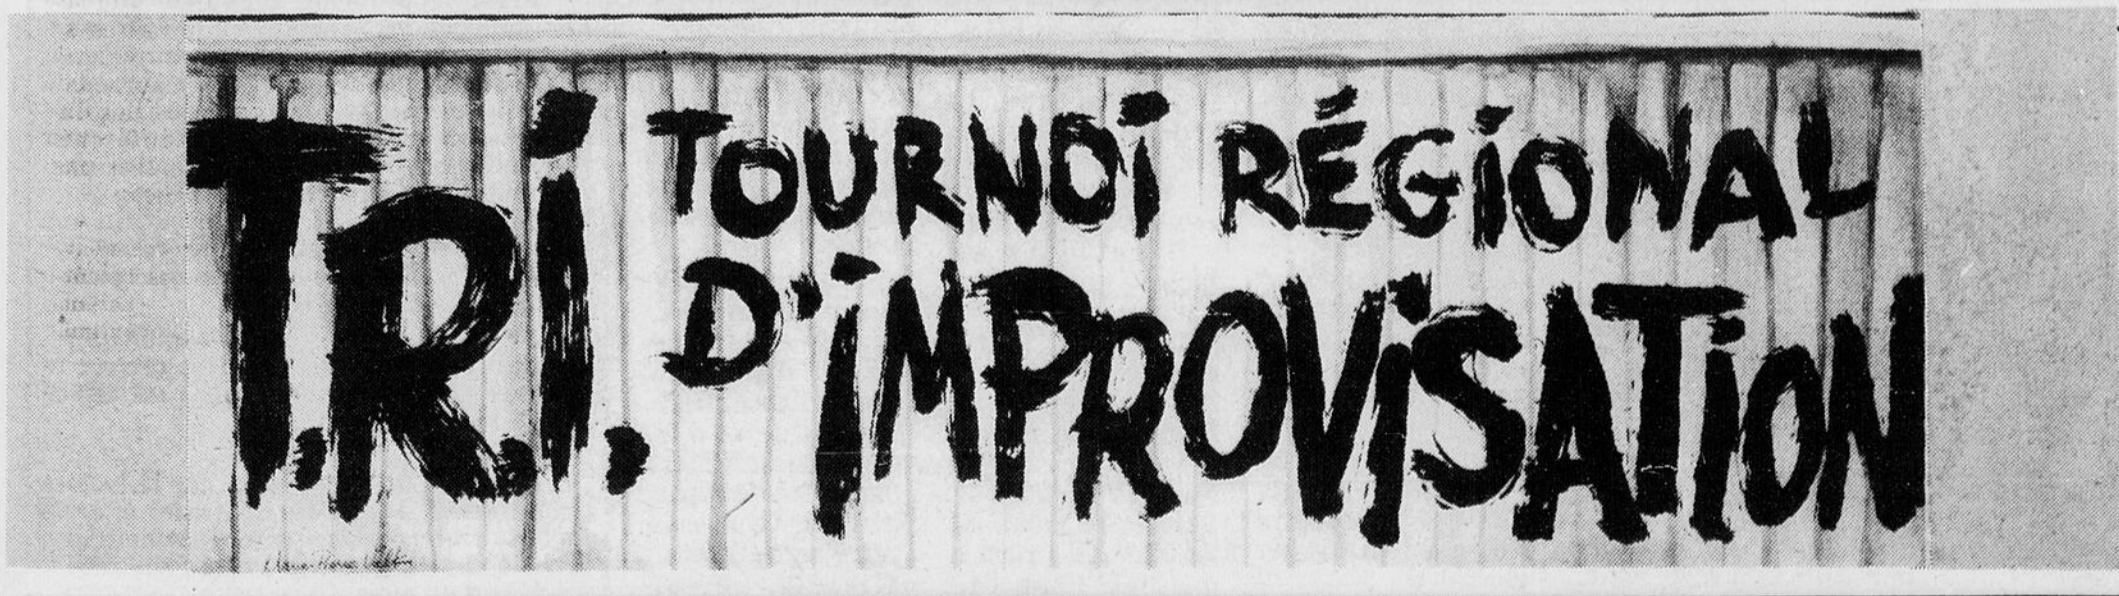 T.R.I. TOURNOI RÉGIONAL
D'IMPROVISATION